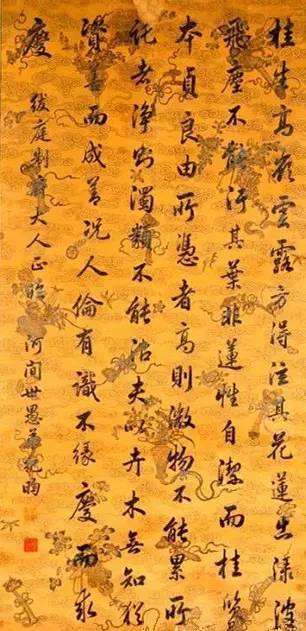 桂生高嶺雲露方得泫其花蓮出渌波
飛塵不能汙其葉非蓮性自潔而桂質
本貞良由所憑者高則微物不能累所
託者淨則濁類不能沾夫以卉木無知猶
資善而成善况人倫有識不緣慶而求
慶
紱庭制軍大人正臨 河間世愚弟紀昀